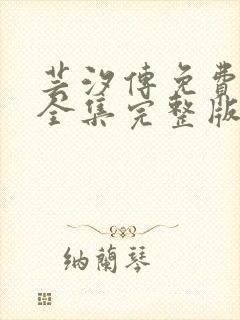 芸汐傳免費
全集完整版
納蘭琴